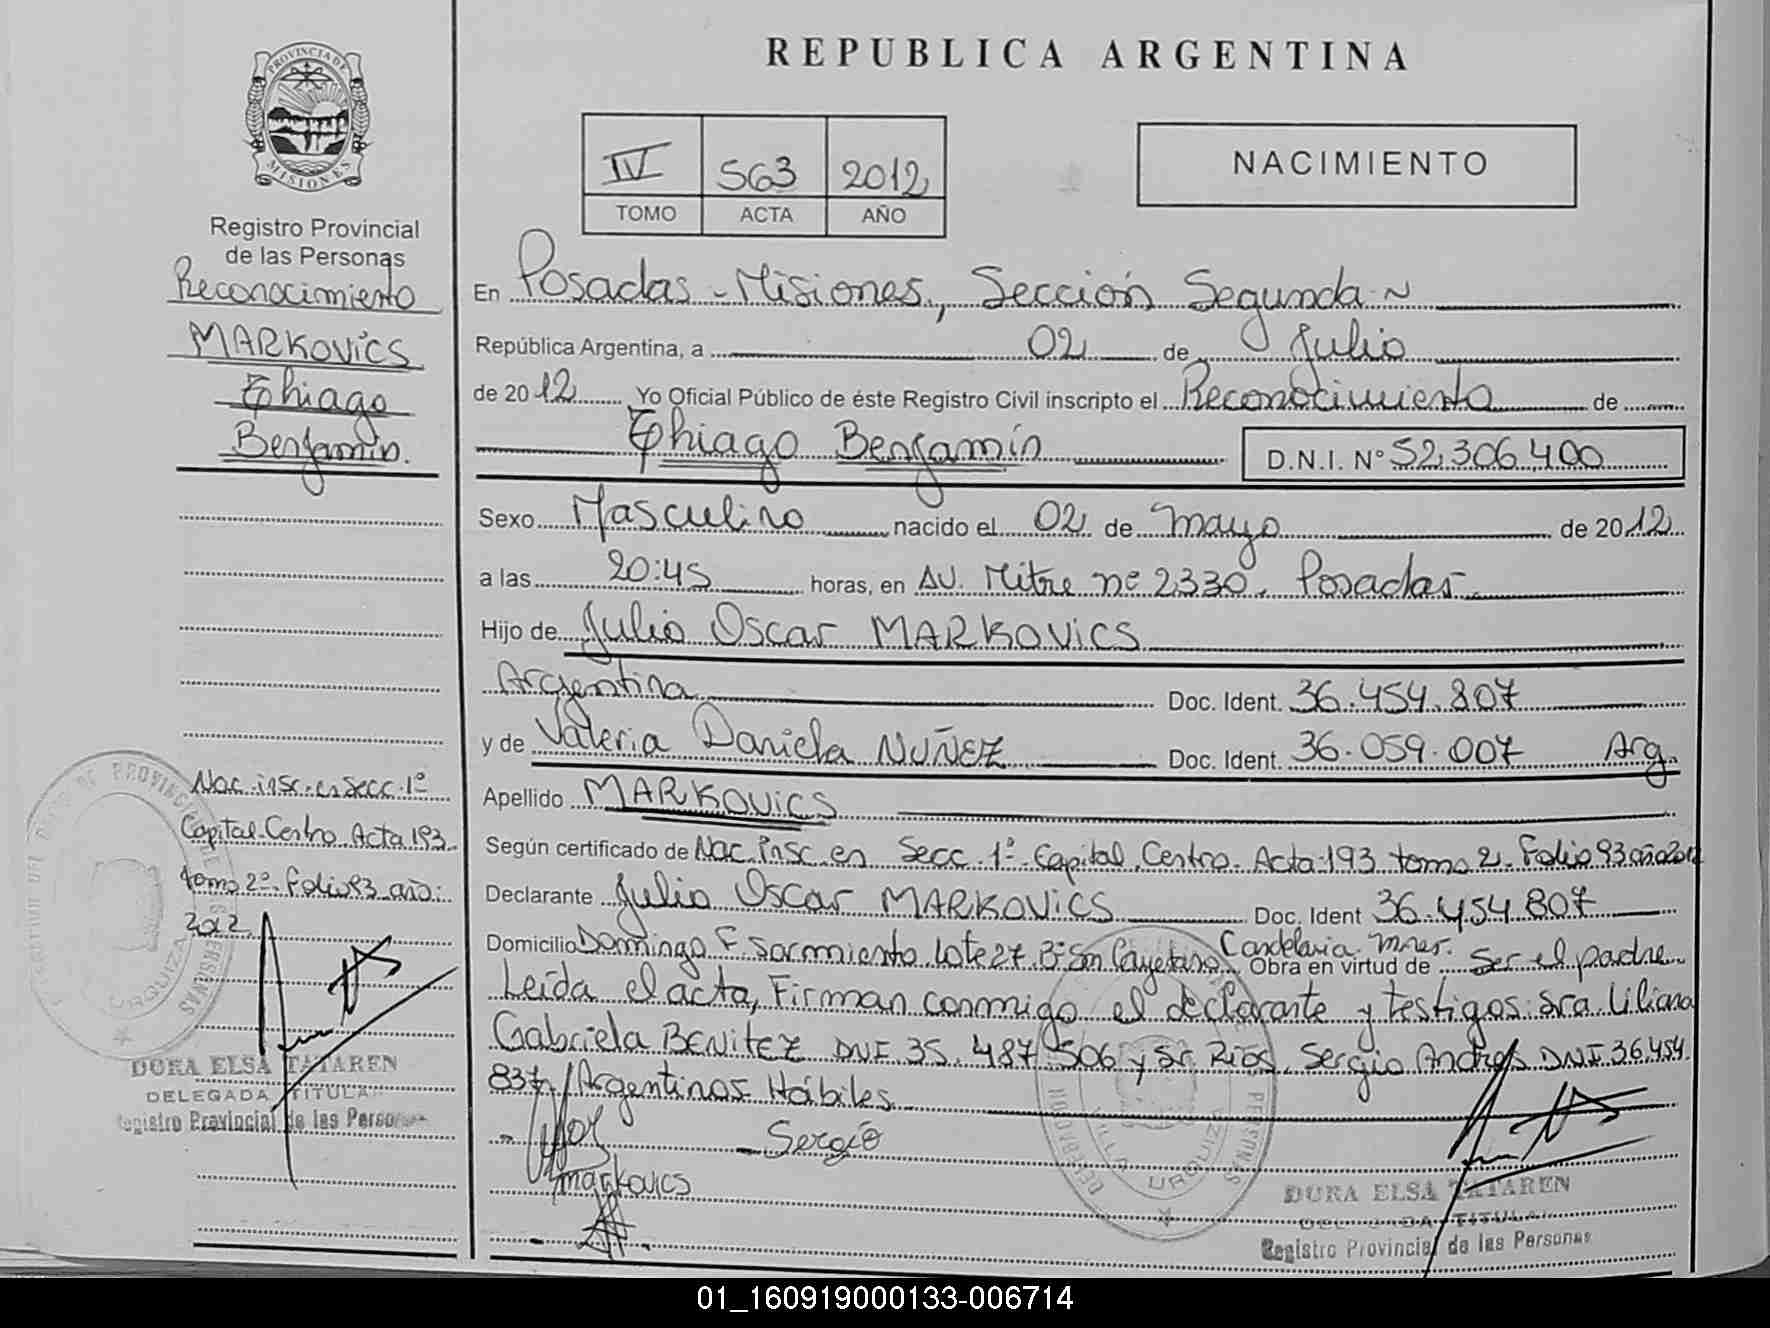 REPUBLICA ARGENTINA
PROVINCIA DE
MISIONES
Registro Provincial
de las Personas
Reconocimiento
MARKOVICS
Thiago
Benjamín.
Nac. insc. en Secc. 1º
Capital-Centro Acta 193.
tomo 2º. Folio 93 año:
2012.
DORA ELSA TATAREN
DELEGADA TITULAR
Registro Provincial de las Personas
IV 563 2012
TOMO ACTA AÑO
NACIMIENTO
En Posadas - Misiones, Sección Segunda ~
República Argentina, a 02 de Julio
de 2012 Yo Oficial Público de éste Registro Civil inscripto el Reconocimiento de
Thiago Benjamín D.N.I. Nº 52.306.400
Sexo Masculino nacido el 02 de mayo de 2012
a las 20:45 horas, en AV. Mitre nº 2330. Posadas
Hijo de Julio Oscar MARKOVICS
Argentina Doc. Ident. 36.454.807
y de Valeria Daniela NUÑEZ Doc. Ident. 36.059.007 Arg.
Apellido MARKOVICS
Según certificado de Nac. insc. en Secc. 1º Capital Centro. Acta 193 tomo 2. Folio 93 año 2012
Declarante Julio Oscar MARKOVICS Doc. Ident 36.454.807
Domicilio Domingo F. Sarmiento lote 27 Bº San Cayetano Candelaria Mnes. Obra en virtud de ser el padre
Leída el acta, Firman conmigo el declarante y testigos: sra. Liliana
Gabriela BENITEZ DNI 35.487.506 y Sr. Rios, Sergio Andres DNI 36.454.
837 / Argentinos Hábiles
Sergio
markovics
URQUIZA
DORA ELSA TATAREN
DELEGADA TITULAR
Registro Provincial de las Personas
01_160919000133-006714